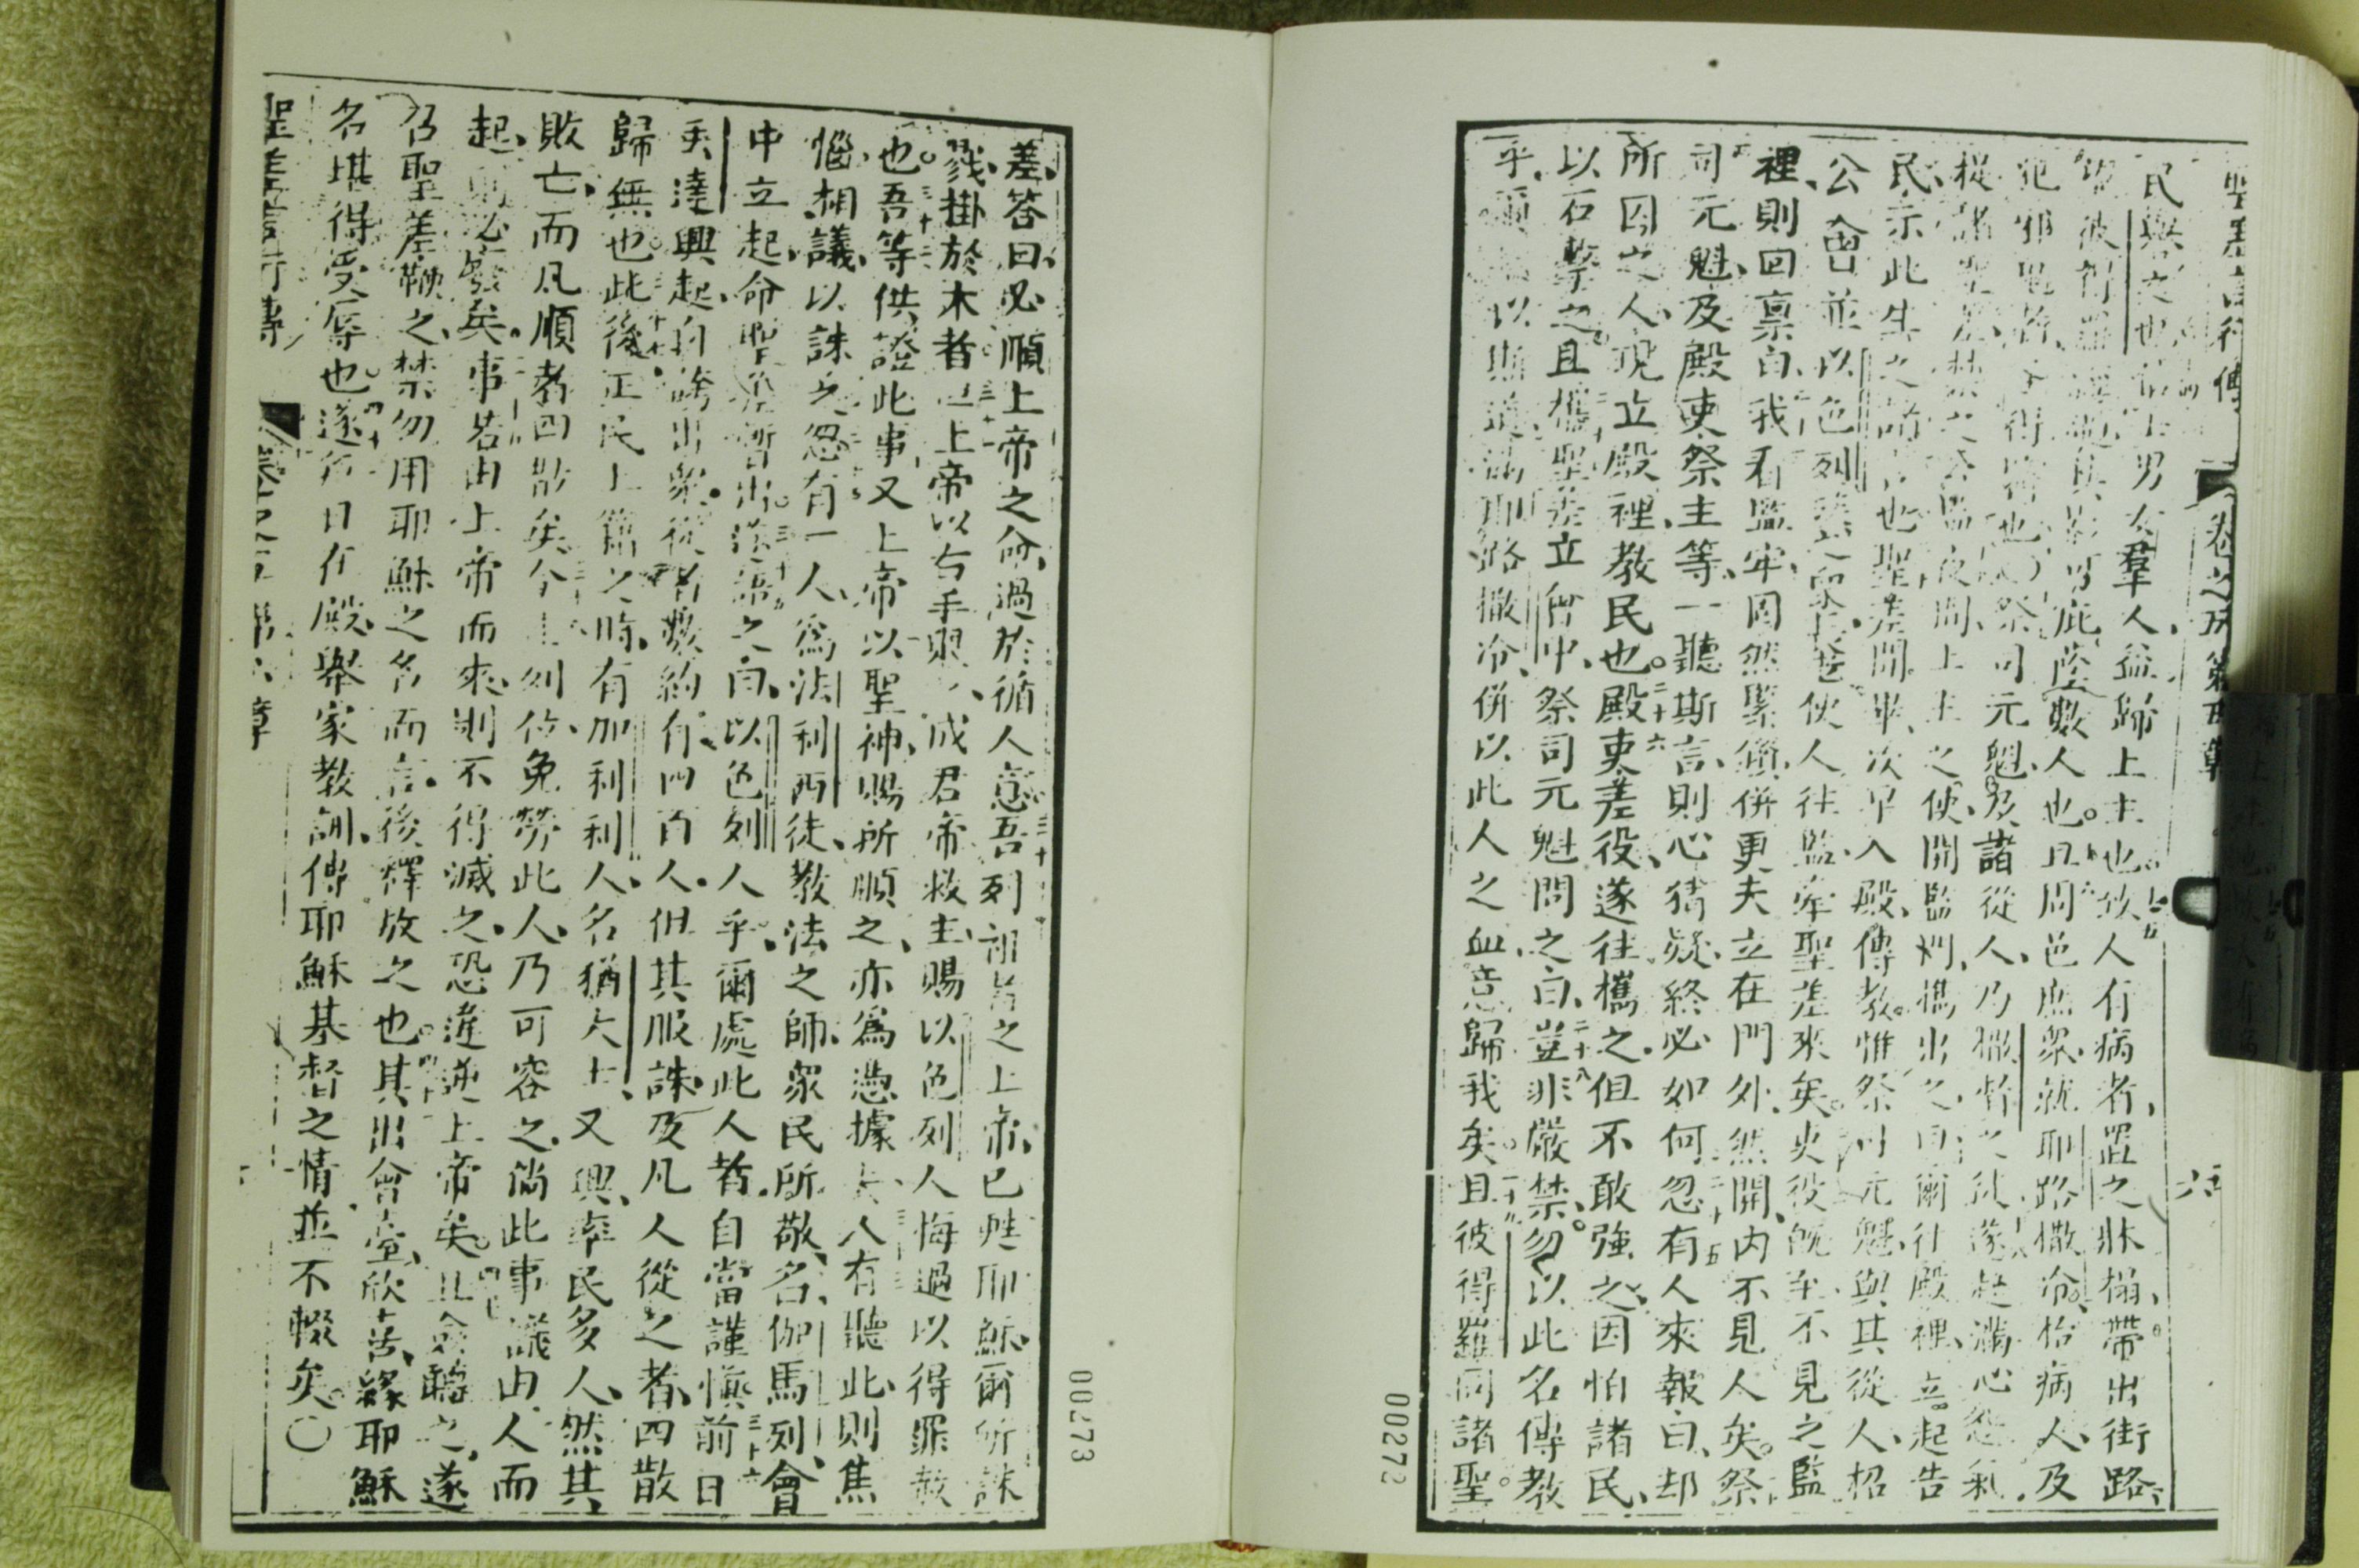 聖差言行傳 卷之五 第五章 六
民與之也信主男女羣人益歸上主也致人有病者置之牀榻帶出街路
彼得羅庇蔭數人也且周邑庶衆就耶路撒冷抬病人及
犯邪鬼者得痊也〇祭司元魁及諸從人乃撒之徒遂起滿心怨氣
從諸聖差禁之公監夜間上主之使開監門攜出之曰爾往殿裡立起告
民示此生之諸言也聖差聞畢次早入殿傳教惟祭司元魁與其從人招
公會並以色列使人往監牢聖差來矣吏役既至不見之監
裡則回稟白我看監牢固然緊鎖併更夫立在門外然開內不見人矣祭
司元魁及殿吏祭主等一聽斯言則心猜疑終必如何忽有人來報白却
所囚之人現立殿裡教民也殿吏差役遂往攜之但不敢強之因怕諸民
以石擊之且攜聖差立會中祭司元魁問之白豈非嚴禁勿以此名傳教
乎爾以斯道滿耶路撒冷併以此人之血意歸我矣且彼得羅同諸聖
00272
差答曰必順上帝之命過於循人意吾列祖之上帝已甦耶穌爾所誅
戮掛於木者上帝以右手成君帝救主賜以色列人悔過以得罪赦
也吾等供證此事又上帝以聖神賜所順之亦爲憑據夫人有聽此則焦
惱相議以誅之忽有一人爲法利西徒教法之師衆民所敬名伽馬列會
中立起命聖差暫出之白以色列人乎爾處此人者自當謹愼前日
興起自誇出衆從者數約有四百人但其服誅及凡人從之者四散
歸無也此後正民上籍之時有加利利人名猶大士又興率民多人然其
敗亡而凡順者四散矣今免勞此人乃可容之倘此事議由人而
起則必廢矣事若由上帝而來則不得滅之恐違逆上帝矣且僉聽之遂
乃聖差鞭之禁勿用耶穌之名而言後釋放之也其出會堂欣喜緣耶穌
名堪得受辱也遂每日在殿舉家教訓傳耶穌基督之情並不輟矣〇
聖差言行傳 卷之五 第六章
00273